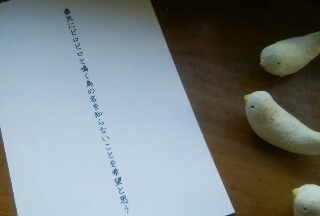 曇天にピロピロと鳴く鳥の名を知らないことを希望と思う